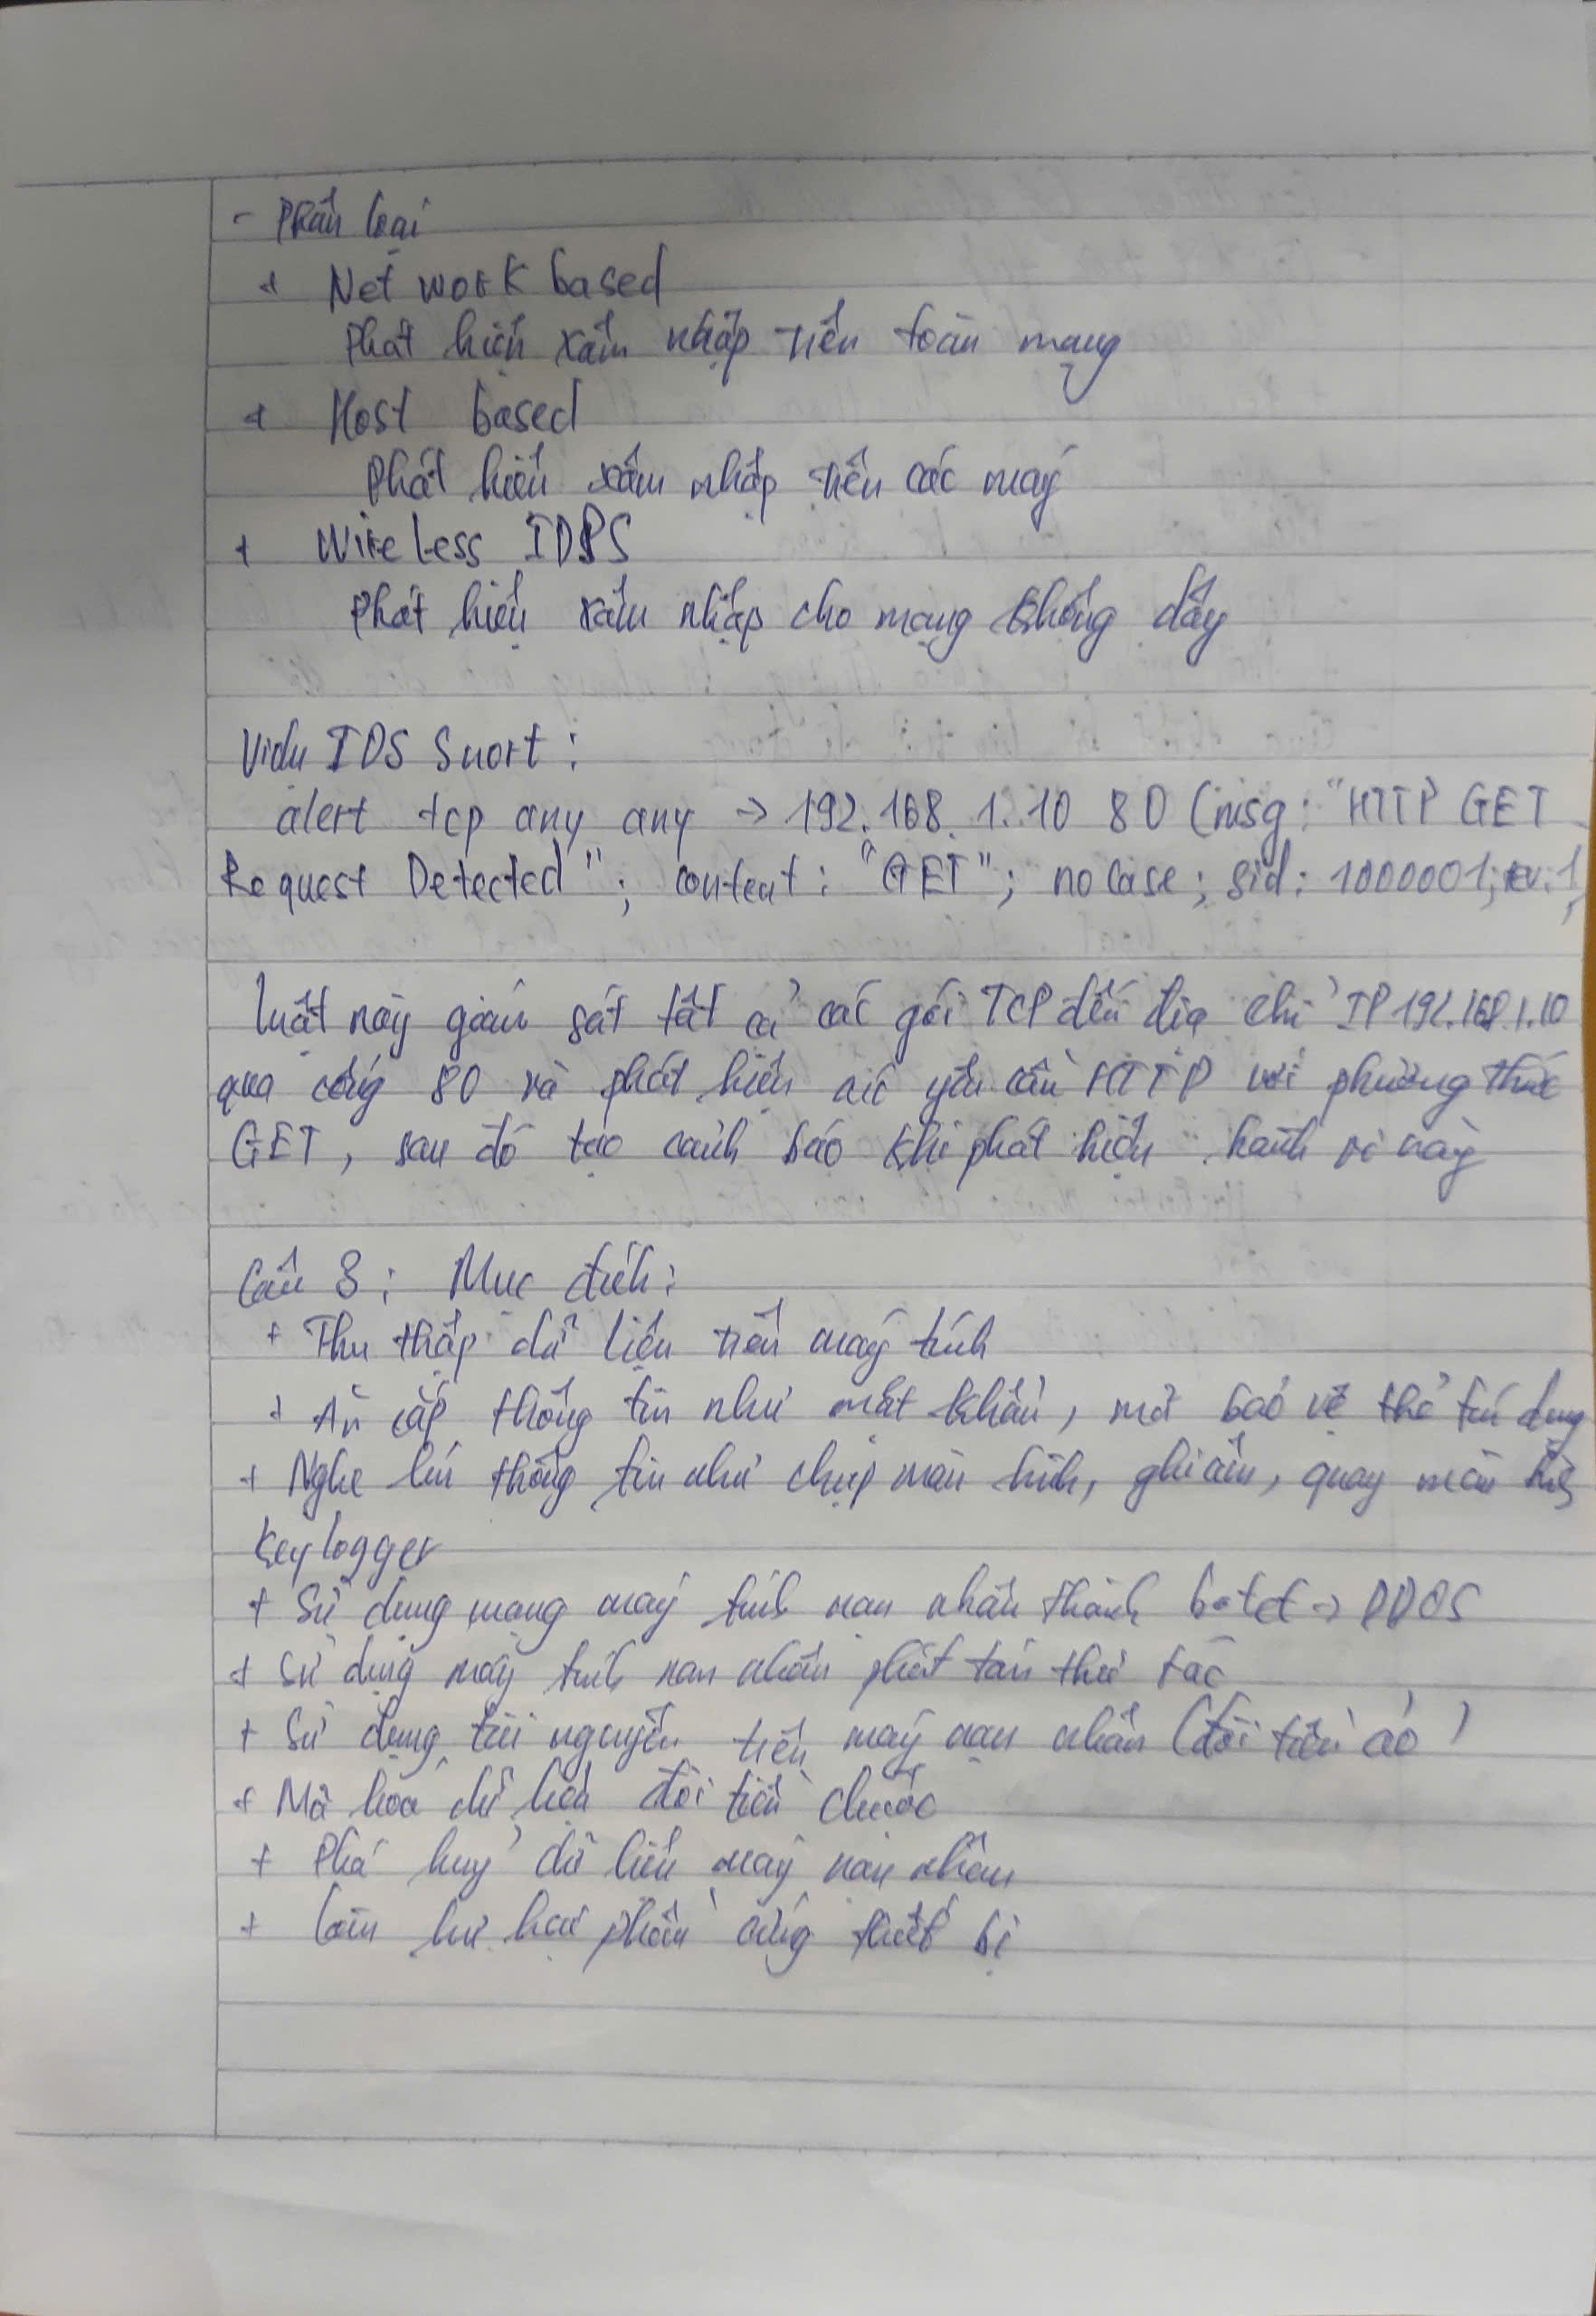 - Phân loại
+ Network based
Phát hiện xâm nhập trên toàn mạng
+ Host based
Phát hiện xâm nhập trên các máy
+ Wireless IDPS
Phát hiện xâm nhập cho mạng không dây
Ví dụ IDS Snort :
alert tcp any any -> 192.168.1.10 80 (msg: "HTTP GET
Request Detected"; content: "GET"; nocase; sid: 1000001; rev:1;
Luật này giám sát tất cả các gói TCP đến địa chỉ IP 192.168.1.10
qua cổng 80 và phát hiện các yêu cầu HTTP với phương thức
GET, sau đó tạo cảnh báo khi phát hiện hành vi này
Câu 3: Mục đích:
+ Thu thập dữ liệu trên máy tính
+ Ăn cắp thông tin như mật khẩu, mã bảo vệ thẻ tín dụng
+ Nghe lén thông tin như chụp màn hình, ghi âm, quay màn hình
Keylogger
+ Sử dụng mạng máy tính nạn nhân thành -> DDOS
+ Sử dụng máy tính nạn nhân phát tán thư rác
+ Sử dụng tài nguyên trên máy nạn nhân (đào tiền ảo)
+ Mã hóa dữ liệu đòi tiền chuộc
+ Phá huỷ dữ liệu máy nạn nhân
+ Làm hư hại phần cứng thiết bị